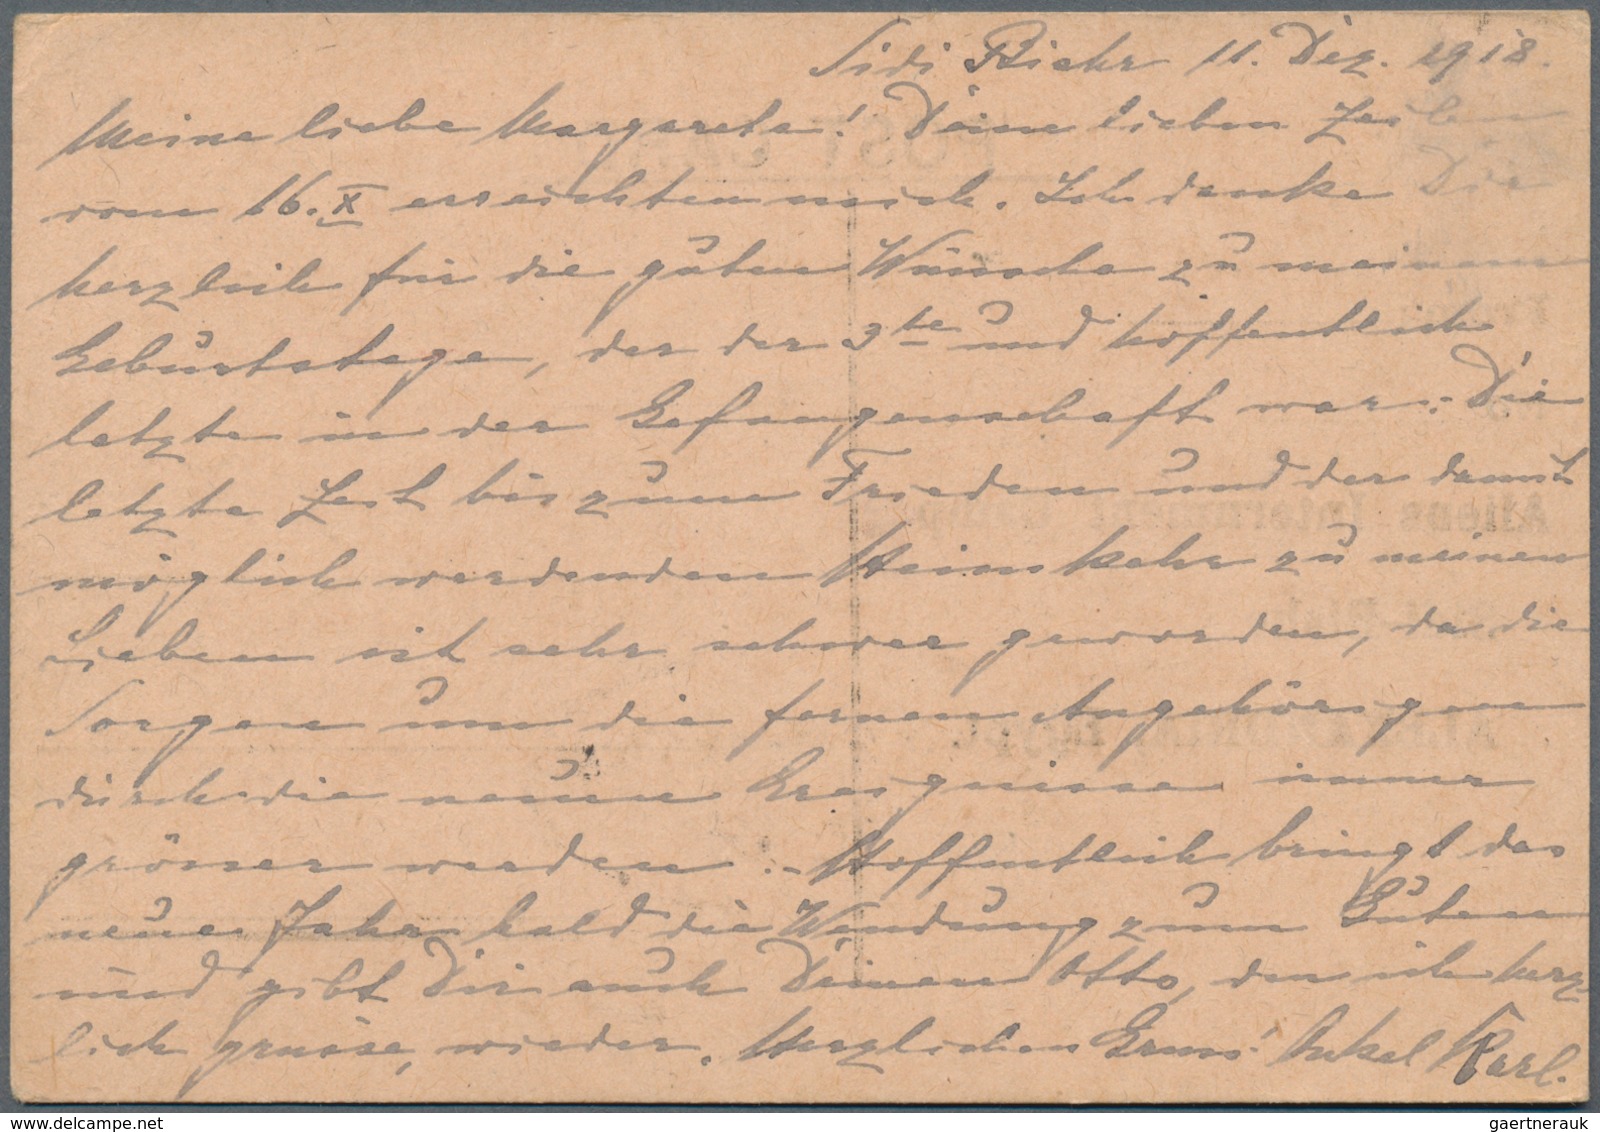 Sidi Bichr 11. Dez. 1918.
Meine liebe Margarete! Deine lieben Zeilen
vom 16. X erreichten mich. Ich danke Dir
herzlich für die guten Wünsche zu meinem
Geburtstage, der der 3te und hoffentlich
letzte in der Gefangenschaft war. Die
letzte Zeit bis zum Frieden und der damit
möglich werdenden Heimkehr zu meinen
Lieben ist sehr schwer geworden, da die
Sorgen um die fernen Angehörigen
durch die neuen Ereignisse immer
grösser werden. - Hoffentlich bringt das
neue Jahr bald die Wendung zum Guten
und gibt Dir auch Deinen Otto, den ich herz-
lich grüsse, wieder. Herzlichen Gruss! Onkel Karl.
POST CARD
Aliens Internment Camp,
gaertnerauk @ delcampe.net